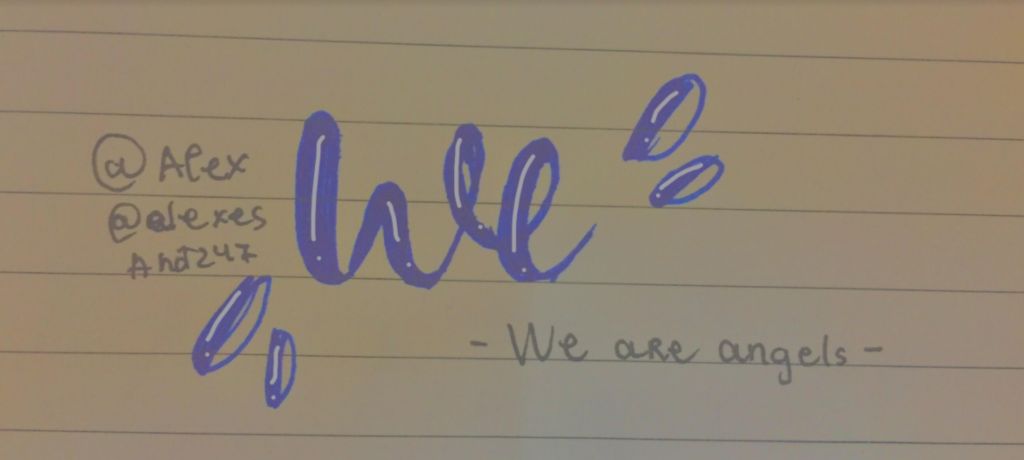 @Alex
@alexes
And247
We
- We are angels -